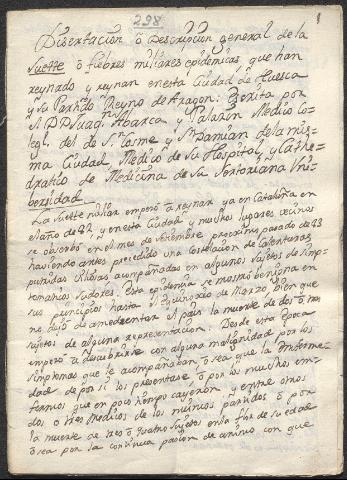 298
1
Disertacion ò Descripcion general de la
Suette ò fiebres miliares epidemicas que han
reynado y reynan en esta Ciudad de Huesca
y su Partido Reyno de Aragon: Escrita por
el D.D. Abarca y Medico Co-
legl. del de S.n Cosme y S.n Damian de la mis-
ma Ciudad, Medico de su Hospital, y Cathe-
dratico de Medicina de su Sertoriana Uni-
bersidad
La Suette miliar empezó a reynar ya en Cataluña en
el año de 82, y en esta Ciudad y muchos lugares vecinos
se observó en el mes de Setiembre proximo pasado de 83
haviendo antes precedido una Costelacion de Calenturas
putridas acompañadas en algunos sujetos de sin-
tomaticos sudores. Esta epidemia se mostró benigna en
sus principios hasta el de Marzo, bien que
no dejó de amedrentar el pais la muerte de dos ò tres
sujetos de alguna representacion. Desde esta epoca
empezó a descubrirse con alguna malignidad por los
sintomas que le acompañaban, ò sea que la enferme-
dad de por si los presentase, ò por los muchos en-
fermos que en poco tiempo cayeron, y entre otros
dos ò tres Medicos de los mismos partidos, ò por
la muerte de tres ò quatro sujetos en la flor de su edad
ò sea por la continua pasion de animo con que